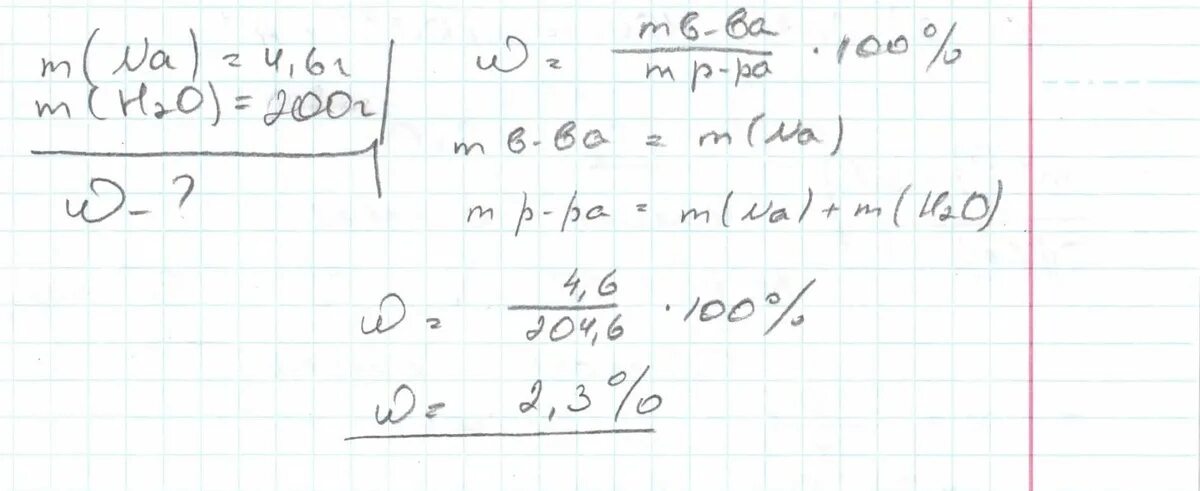 m(Na) = 4,6г
m(H₂O) = 200г
ω - ?
ω = m в-ва / m р-ра · 100%
m в-ва = m(Na)
m р-ра = m(Na) + m(H₂O)
ω = 4,6 / 204,6 · 100%
ω = 2,3%